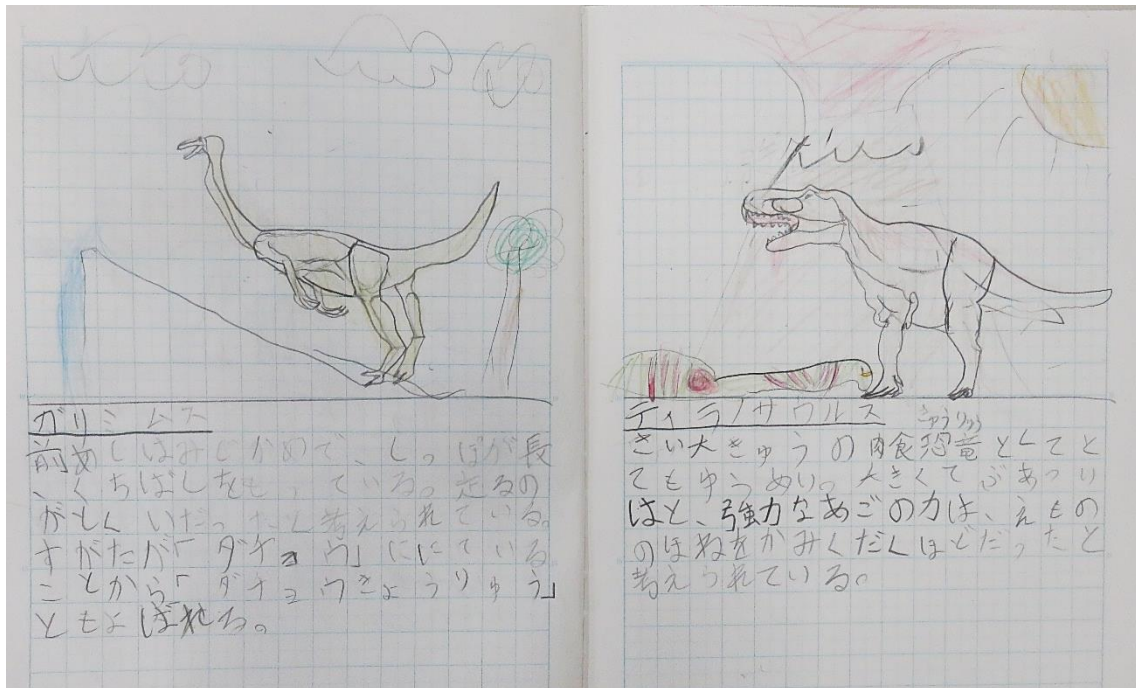 ガリミムス
前あしはみじかめで、しっぽが長
、くちばしをもっている。走るの
がとくいだったと考えられている。
すがたが「ダチョウ」ににている
ことから「ダチョウきょうりゅう」
ともよばれる。
ティラノサウルス
さい大きゅうの肉食恐竜としてと
てもゆうめい。大きくてぶあつい
はと、強力なあごの力は、えもの
のほねをかみくだくほどだったと
考えられている。